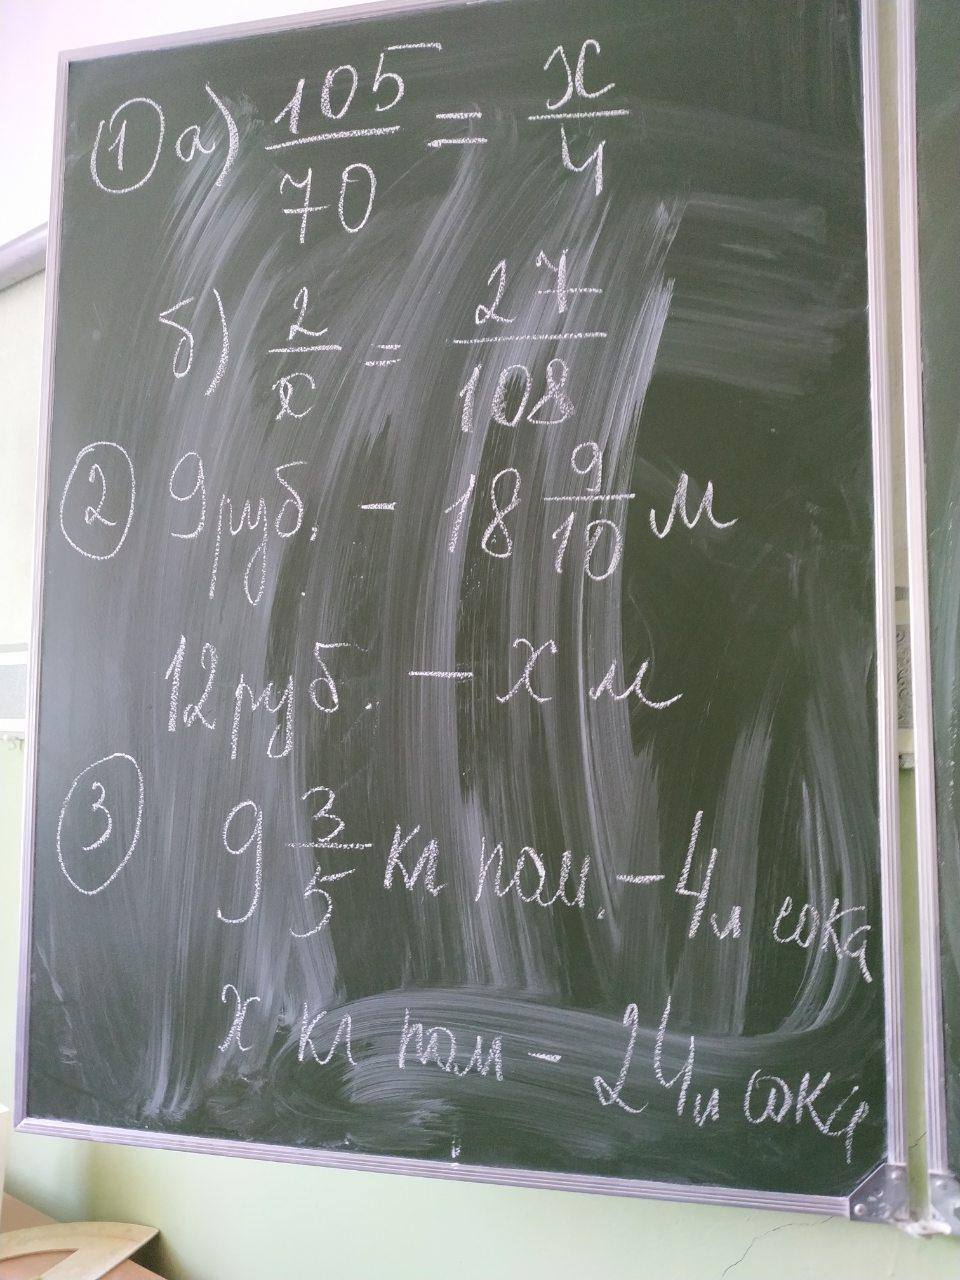 ① а) 105/70 = x/4
б) 2/x = 27/108
② 9 руб. - 18 9/10 м
12 руб. - x м
③ 9 3/5 кг пом. - 4 л сока
x кг пом - 24 л сока